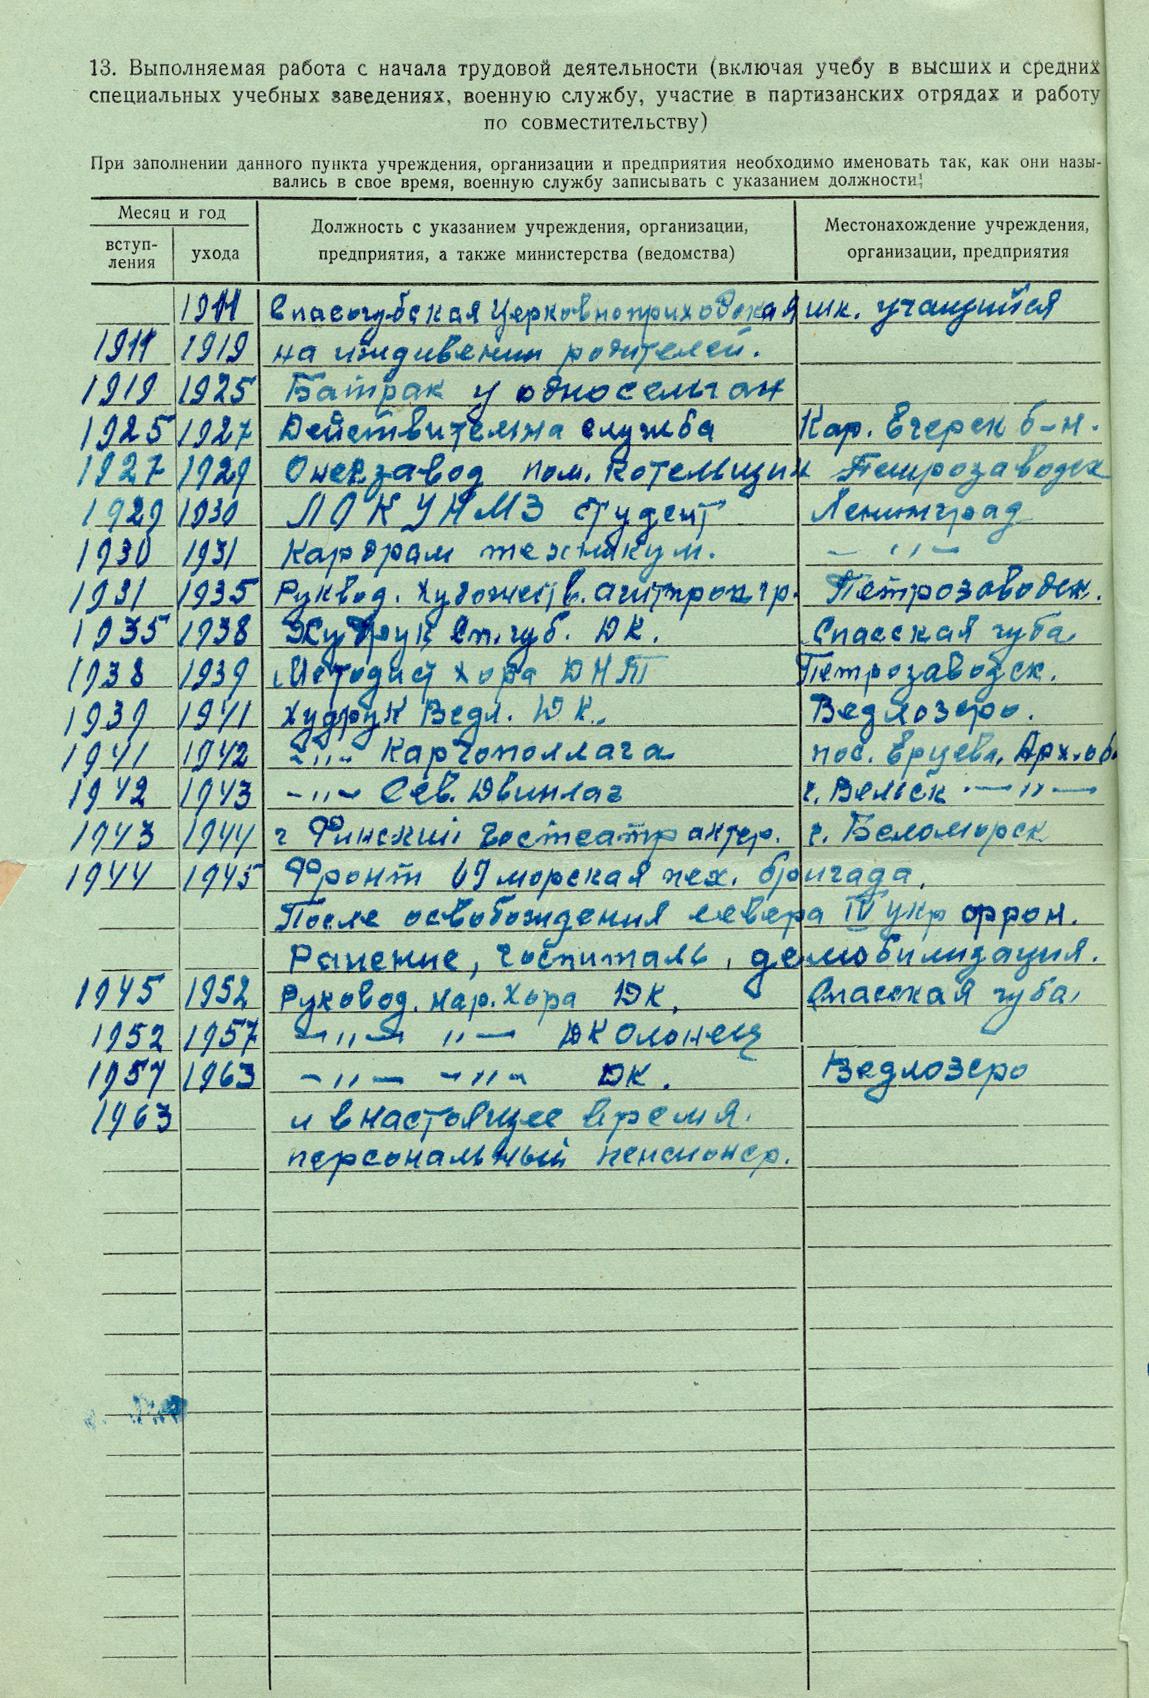 13. Выполняемая работа с начала трудовой деятельности (включая учебу в высших и средних
специальных учебных заведениях, военную службу, участие в партизанских отрядах и работу
по совместительству)
При заполнении данного пункта учреждения, организации и предприятия необходимо именовать так, как они назы-
вались в свое время, военную службу записывать с указанием должности.
Месяц и год
вступ-
ления
ухода
Должность с указанием учреждения, организации,
предприятия, а также министерства (ведомства)
Местонахождение учреждения,
организации, предприятия
1911 Спасогубская Церковноприходская шк. учащийся
1911 1919 на иждивении родителей.
1919 1925 Батрак у односельчан
1925 1927 Действительна служба Кар. Егерск б-н.
1927 1929 Онегзавод пом. Котельщик Петрозаводск
1929 1930 ЛОКУНМЗ студент Ленинград
1930 1931 Кардрам техникум. - " -
1931 1935 Руквод. Художеств. агитпроп гр. Петрозаводск.
1935 1938 Худрук Сп. губ. ДК. Спасская губа
1938 1939 Методист хора ДНТ Петрозаводск.
1939 1941 Худрук Ведл. ДК. Ведлозеро.
1941 1942 -"- Каргополлага пос. Ерцева, Арх. об
1942 1943 -"- Сев. Двинлаг г. Вельск -"-
1943 1944 г Финский Гостеатр актер. г. Беломорск
1944 1945 Фронт 69 морская пех. бригада.
После освобождения севера IV укр фрон.
Ранение, госпиталь, демобилизация.
1945 1952 Руковод. нар. Хора ДК. Спасская губа,
1952 1957 -"- "- ДК Олонец
1957 1963 -"- -"- ДК. Ведлозеро
1963 и в настоящее время.
персональный пенсионер.